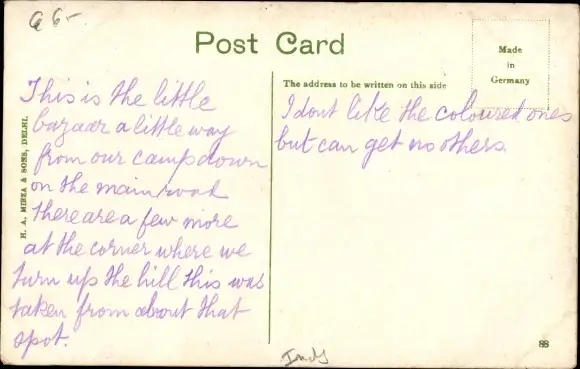 Q 6-
Post Card
Made
in
Germany
The address to be written on this side
H. A. MIRZA & SONS, DELHI.
This is the little
bazaar a little way
from our camp down
on the main road
there are a few more
at the corner where we
turn up the hill this was
taken from about that
spot.
I dont like the coloured ones
but can get no others.
88